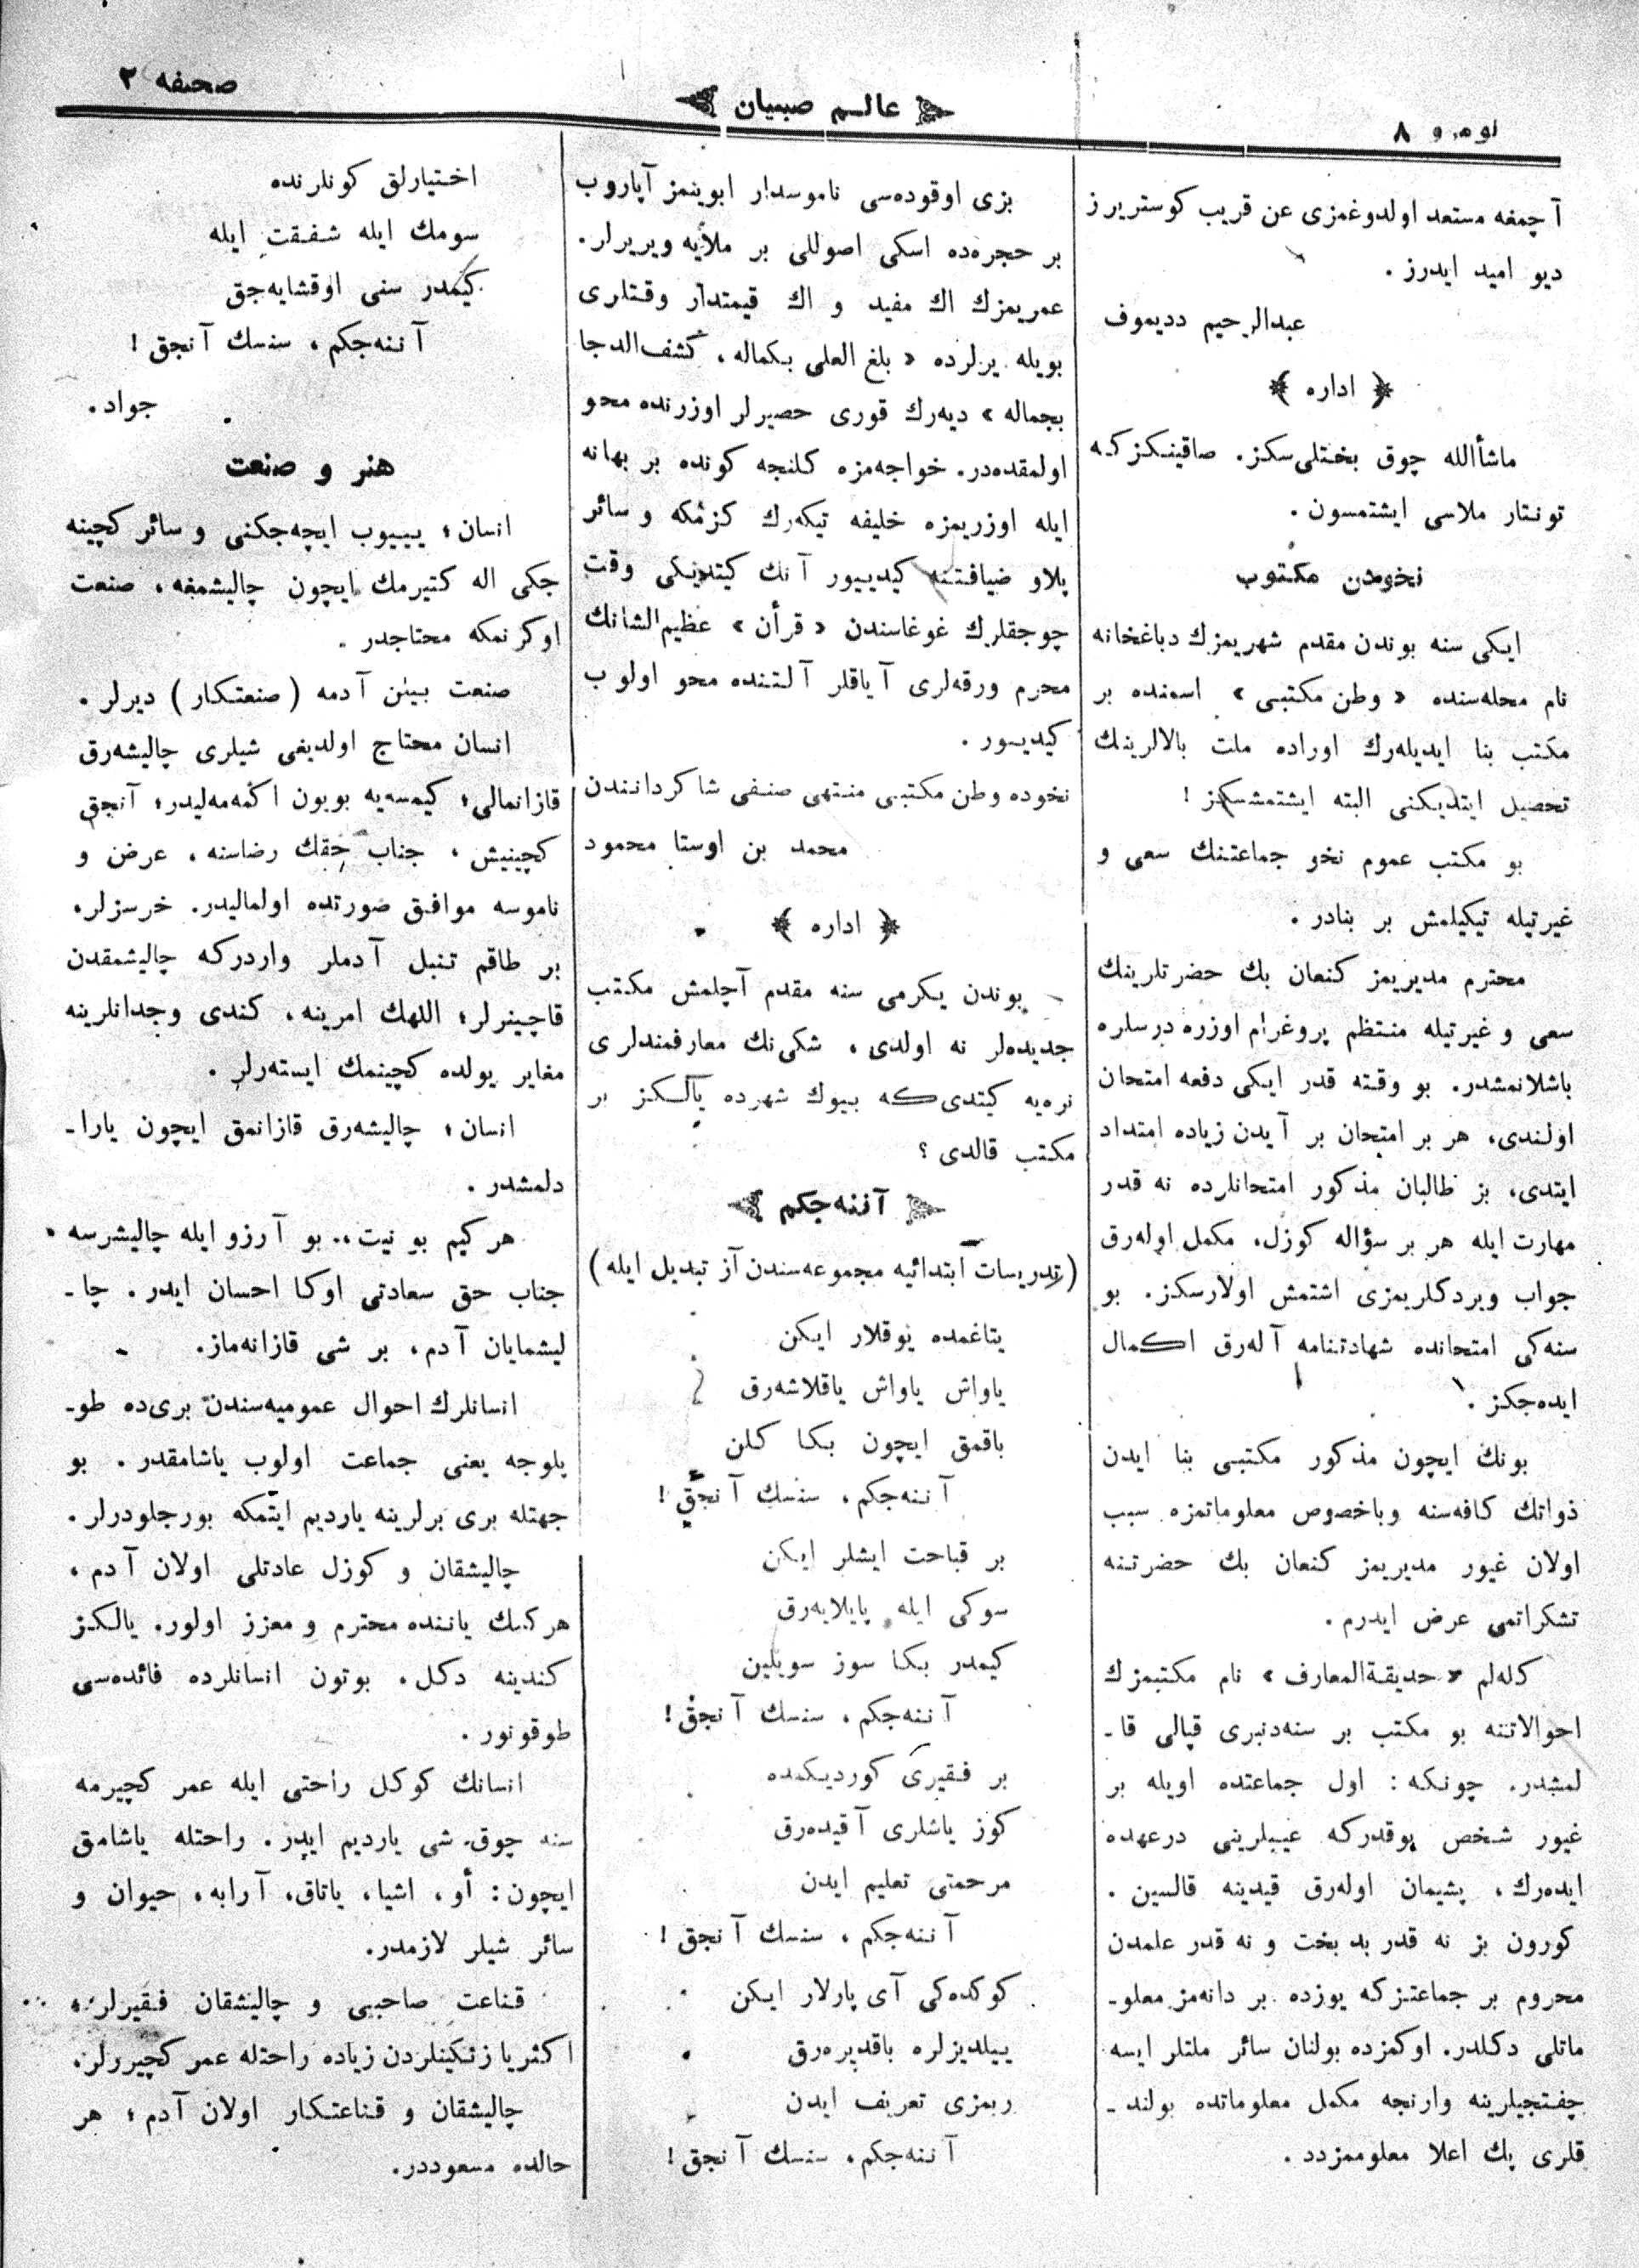 نومرو ٨
عالم صبیان
صحیفه ٣
آچمغه مستعد اولدوغمزی عن قریب کوستریرز
دیو امید ایدرز .
عبدالرحیم ددیموف
﴿ اداره ﴾
ماشأالله چوق بختلی‌سکز. صاقینکز که
تونتار ملاسی ایشتمسون .
نخودن مکتوب
ایکی سنه بوندن مقدم شهریمزك دباغخانه
نام محله‌سنده « وطن مکتبی » اسمنده بر
مکتب بنا ایدیله‌رك اوراده ملت بالالرینك
تحصیل ایتدیکنی البته ایشتمشسکز !
بو مکتب عموم نخو جماعتنك سعی و
غیرتیله تیکیلمش بر بنادر .
محترم مدیریمز کنعان بك حضرتلرینك
سعی و غیرتیله منتظم پروغرام اوزره درسلره
باشلانمشدر. بو وقته قدر ایکی دفعه امتحان
اولندی، هر بر امتحان بر آیدن زیاده امتداد
ایتدی، بز طالبان مذکور امتحانلرده نه قدر
مهارت ایله هر بر سؤاله کوزل، مکمل اوله‌رق
جواب ویردکلریمزی اشتمش اولارسکز. بو
سنه‌کی امتحانده شهادتنامه آله‌رق اکمال
ایده‌جکز .
بونك ایچون مذکور مکتبی بنا ایدن
ذواتك کافه‌سنه وباخصوص معلوماتمزه سبب
اولان غیور مدیریمز کنعان بك حضرتنه
تشکراتمی عرض ایدرم .
کله‌لم « حدیقة‌المعارف » نام مکتبمزك
احوالاتنه بو مکتب بر سنه‌دنبری قپالی قا-
لمشدر. چونکه : اول جماعتده اویله بر
غیور شخص یوقدرکه عیبلرینی درعهده
ایده‌رك ، پشیمان اوله‌رق قیدینه قالسین .
کورون بز نه قدر بدبخت و نه قدر علمدن
محروم بر جماعتزکه یوزده بر دانه‌مز معلو-
ماتلی دکلدر. اوکمزده بولنان سائر ملتلر ایسه
چفتجیلرینه وارنجه مکمل معلوماتده بولند-
قلری پك اعلا معلوممزدد .
بزی اوقوده‌سی ناموسدار ابوینمز آپاروب
بر حجره‌ده اسکی اصوللی بر ملایه ویریرلر.
عمریمزك اك مفید و اك قیمتدار وقتلری
بویله یرلرده « بلغ العلی بکماله ، کشف‌الدجا
بجماله » دیه‌رك قوری حصیرلر اوزرنده محو
اولمقده‌در. خواجه‌مزه کلنجه کونده بر بهانه
ایله اوزریمزه خلیفه تیکه‌رك کزمکه و سائر
پلاو ضیافتنه کیدییور آنك کیتدیکی وقت
چوجقلرك غوغاسندن « قرأن » عظیم‌الشانك
محرم ورقه‌لری آیاقلر آلتنده محو اولوب
کیدیور .
نخوده وطن مکتبی منتهی صنفی شاکرداننندن
محمد بن اوستا محمود
﴿ اداره ﴾
بوندن یکرمی سنه مقدم آچلمش مکتب
جدیده‌لر نه اولدی ، شکی‌نك معارفمندلری
نره‌یه کیتدی‌که بیوك شهرده یالکز بر
مکتب قالدی ؟
آننه‌جکم
(تدریسات ابتدائیه مجموعه‌سندن آز تبدیل ایله)
یتاغمده یوقلار ایکن
یاواش یاواش یاقلاشه‌رق
باقمق ایچون بکا کلن
آننه‌جکم ، سنسك آنجق !
بر قباحت ایشلر ایکن
سوکی ایله پایلایه‌رق
کیمدر بکا سوز سویلین
آننه‌جکم ، سنسك آنجق !
بر فقیری کوردیکمده
کوز یاشلری آقیده‌رق
مرحمتی تعلیم ایدن
آننه‌جکم ، سنسك آنجق !
کوکده‌کی آی پارلار ایکن
ییلدیزلره باقدیره‌رق
ربمزی تعریف ایدن
آننه‌جکم ، سنسك آنجق !
اختیارلق کونلرنده
سومك ایله شفقت ایله
کیمدر سنی اوقشایه‌جق
آننه‌جکم ، سنسك آنجق !
جواد.
هنر و صنعت
انسان ؛ یییوب ایچه‌جکنی و سائر کچینه
جکی اله کتیرمك ایچون چالیشمغه ، صنعت
اوکرنمکه محتاجدر .
صنعت بیلن آدمه (صنعتکار) دیرلر .
انسان محتاج اولدیغی شیلری چالیشه‌رق
قازانمالی ؛ کیمسه‌یه بویون اکمه‌مه‌لیدر ؛ آنجق
کچینیش ، جناب حقك رضاسنه ، عرض و
ناموسه موافق صورتده اولمالیدر. خرسزلر،
بر طاقم تنبل آدملر واردرکه چالیشمقدن
قاچینرلر ؛ اللهك امرینه ، کندی وجدانلرینه
مغایر یولده کچینمك ایسته‌رلر .
انسان ؛ چالیشه‌رق قازانمق ایچون یارا-
دلمشدر .
هر کیم بو نیت ، بو آرزو ایله چالیشرسه
جناب حق سعادتی اوکا احسان ایدر . چا-
لیشمایان آدم ، بر شی قازانه‌ماز.
انسانلرك احوال عمومیه‌سندن بری‌ده طو-
پلوجه یعنی جماعت اولوب یاشامقدر . بو
جهتله بری برلرینه یاردیم ایتمکه بورجلودرلر .
چالیشقان و کوزل عادتلی اولان آدم ،
هرکسك یاننده محترم و معزز اولور. یالکز
کندینه دکل ، بوتون انسانلرده فائده‌سی
طوقونور .
انسانك کوکل راحتی ایله عمر کچیرمه
سنه چوق شی یاردیم ایدر. راحتله یاشامق
ایچون : أو ، اشیا ، یاتاق ، آرابه ، حیوان و
سائر شیلر لازمدر.
قناعت صاحبی و چالیشقان فقیرلر ،
اکثریا زنکینلردن زیاده راحتله عمر کچیررلر.
چالیشقان و قناعتکار اولان آدم ؛ هر
حالده مسعوددر.